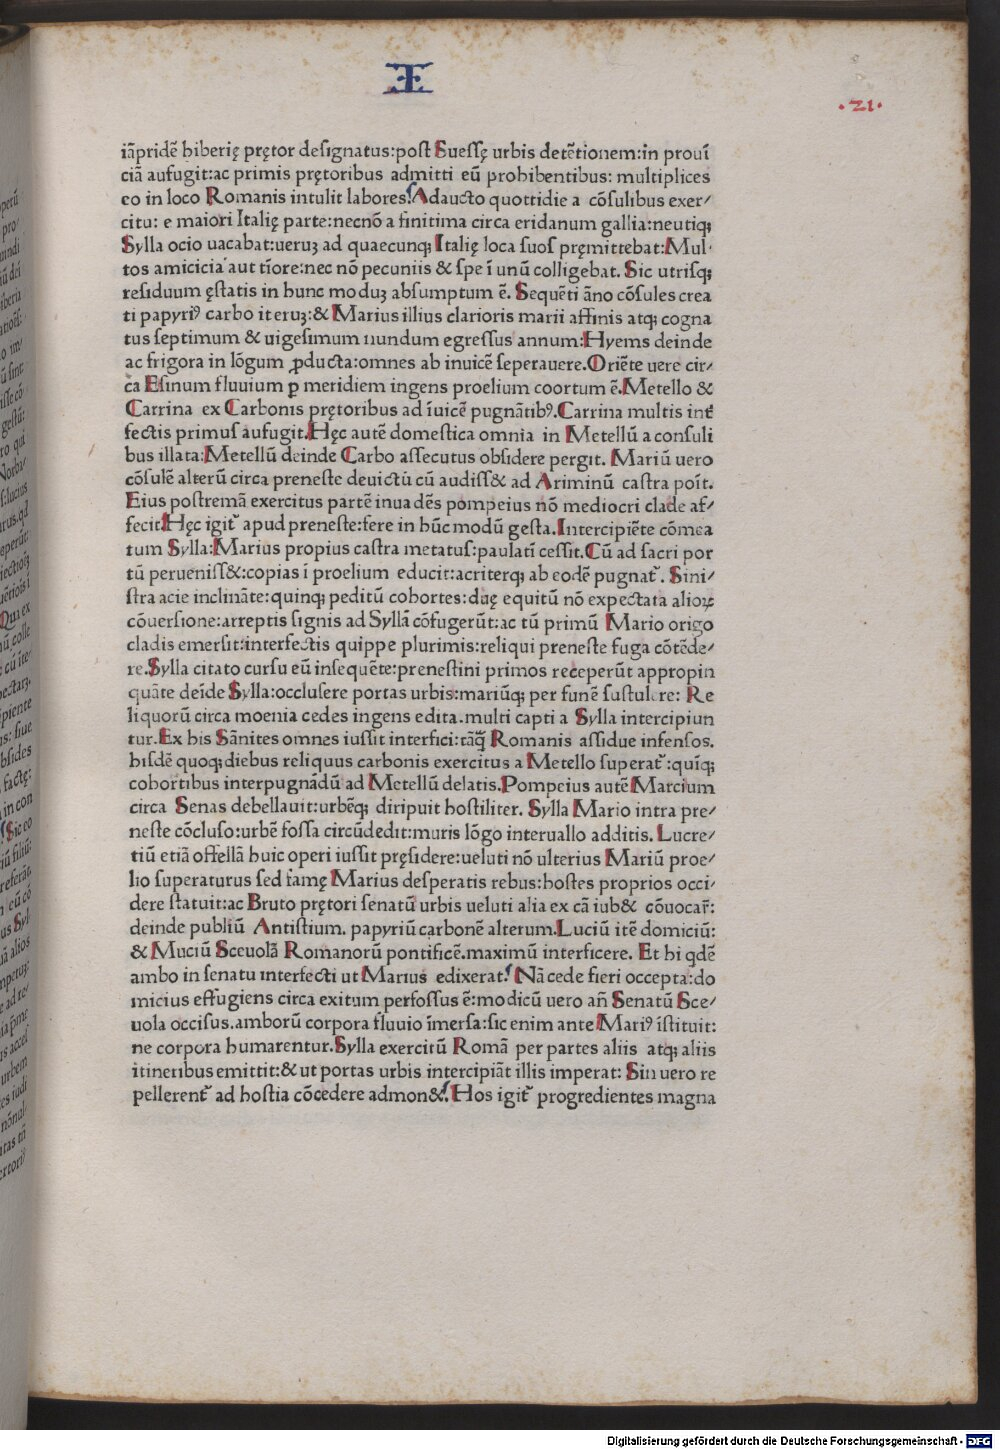 Æ
·21·
iāpridē hiberię prętor deſignatus:poſt Sueſſę urbis detētionem:in prouī
ciā aufugit:ac primis prętoribus admitti eū prohibentibus: multiplices
eo in loco Romanis intulit labores. Adaucto quottidie a cōſulibus exer/
citu: e maiori Italię parte:necnō a finitima circa eridanum gallia:neutiꝗ
Sylla ocio uacabat:ueruꝫ ad quaecunꝗ Italię loca ſuoſ pręmittebat:Mul·
tos amicicia aut tīore:nec nō pecuniis & ſpe ī unū colligebat. Sic utriſꝗ
reſiduum ęſtatis in hunc moduꝫ abſumptum ē. Sequēti āno cōſules crea
ti papyriꝰ carbo iteruꝫ:& Marius illius clarioris marii affinis atꝗ cogna
tus ſeptimum & uigeſimum nundum egreſſus annum:Hyems deinde
ac frigora in lōgum ꝓducta:omnes ab inuicē ſeperauere.Oriēte uere cir/
ca Eſinum fluuium ꝑ meridiem ingens proelium coortum ē.Metello &
Carrina ex Carbonis prętoribus ad īuicē pugnātibꝰ.Carrina multis int̄
fectis primuſ aufugit.Hęc autē domeſtica omnia in Metellū a conſuli
bus illata:Metellū deinde Carbo aſſecutus obſidere pergit. Mariū uero
cōſulē alterū circa preneſte deuictū cū audiſſ& ad Ariminū caſtra poīt.
Eius poſtremā exercitus partē inuadēs pompeius nō mediocri clade af/
fecit.Hęc igit᷑ apud preneſte:fere in hūc modū geſta.Intercipiēte cōmea
tum Sylla:Marius propius caſtra metatuſ:paulatī ceſſit.Cū ad ſacri por
tū perueniſſ&:copias ī proelium educit:acriterꝗ ab eodē pugnat᷑. Sini/
ſtra acie inclināte:quinꝗ peditū cohortes:duę equitū nō expectata alioꝝ
cōuerſione:arreptis ſignis ad Syllā cōfugerūt:ac tū primū Mario origo
cladis emerſit:interfectis quippe plurimis:reliqui preneſte fuga cōtēde-
re.Sylla citato curſu eū inſequēte:preneſtini primos receperūt appropin
quāte deīde Sylla:occluſere portas urbis:mariūꝗ per funē ſuſtulere: Re
liquorū circa moenia cedes ingens edita.multi capti a Sylla intercipiun
tur.Ex his Sānites omnes iuſſit interfici:tāꝗ̄ Romanis aſſidue infenſos.
hiſdē quoꝗ diebus reliquus carbonis exercitus a Metello ſuperat᷑:quīꝗ
cohortibus interpugnādū ad Metellū delatis.Pompeius autē Marcium
circa Senas debellauit:urbēꝗ diripuit hoſtiliter. Sylla Mario intra pre/
neſte cōcluſo:urbē foſſa circūdedit:muris lōgo interuallo additis. Lucre/
tiū etiā offellā huic operi iuſſit pręſidere:ueluti nō ulterius Mariū proe/
lio ſuperaturus ſed famę Marius deſperatis rebus:hoſtes proprios occi/
dere ſtatuit:ac Bruto prętori ſenatū urbis ueluti alia ex cā iub& cōuocar̄:
deinde publiū Antiſtium. papyriū carbonē alterum.Luciū itē domiciū:
& Muciū Sceuolā Romanorū pontificē.maximū interficere. Et hi qdē
ambo in ſenatu interfecti ut Marius edixerat. Nā cede fieri occepta:do
micius effugiens circa exitum perfoſſus ē:modicū uero añ Senatū Sce/
uola occiſus.amborū corpora fluuio īmerſa:ſic enim ante Mariꝰ īſtituit:
ne corpora humarentur.Sylla exercitū Romā per partes aliis atꝗ aliis
itineribus emittit:& ut portas urbis intercipiāt illis imperat: Sin uero re
pellerent᷑ ad hoſtia cōcedere admon&. Hos igit᷑ progredientes magna
Digitalisierung gefördert durch die Deutsche Forschungsgemeinschaft - DFG